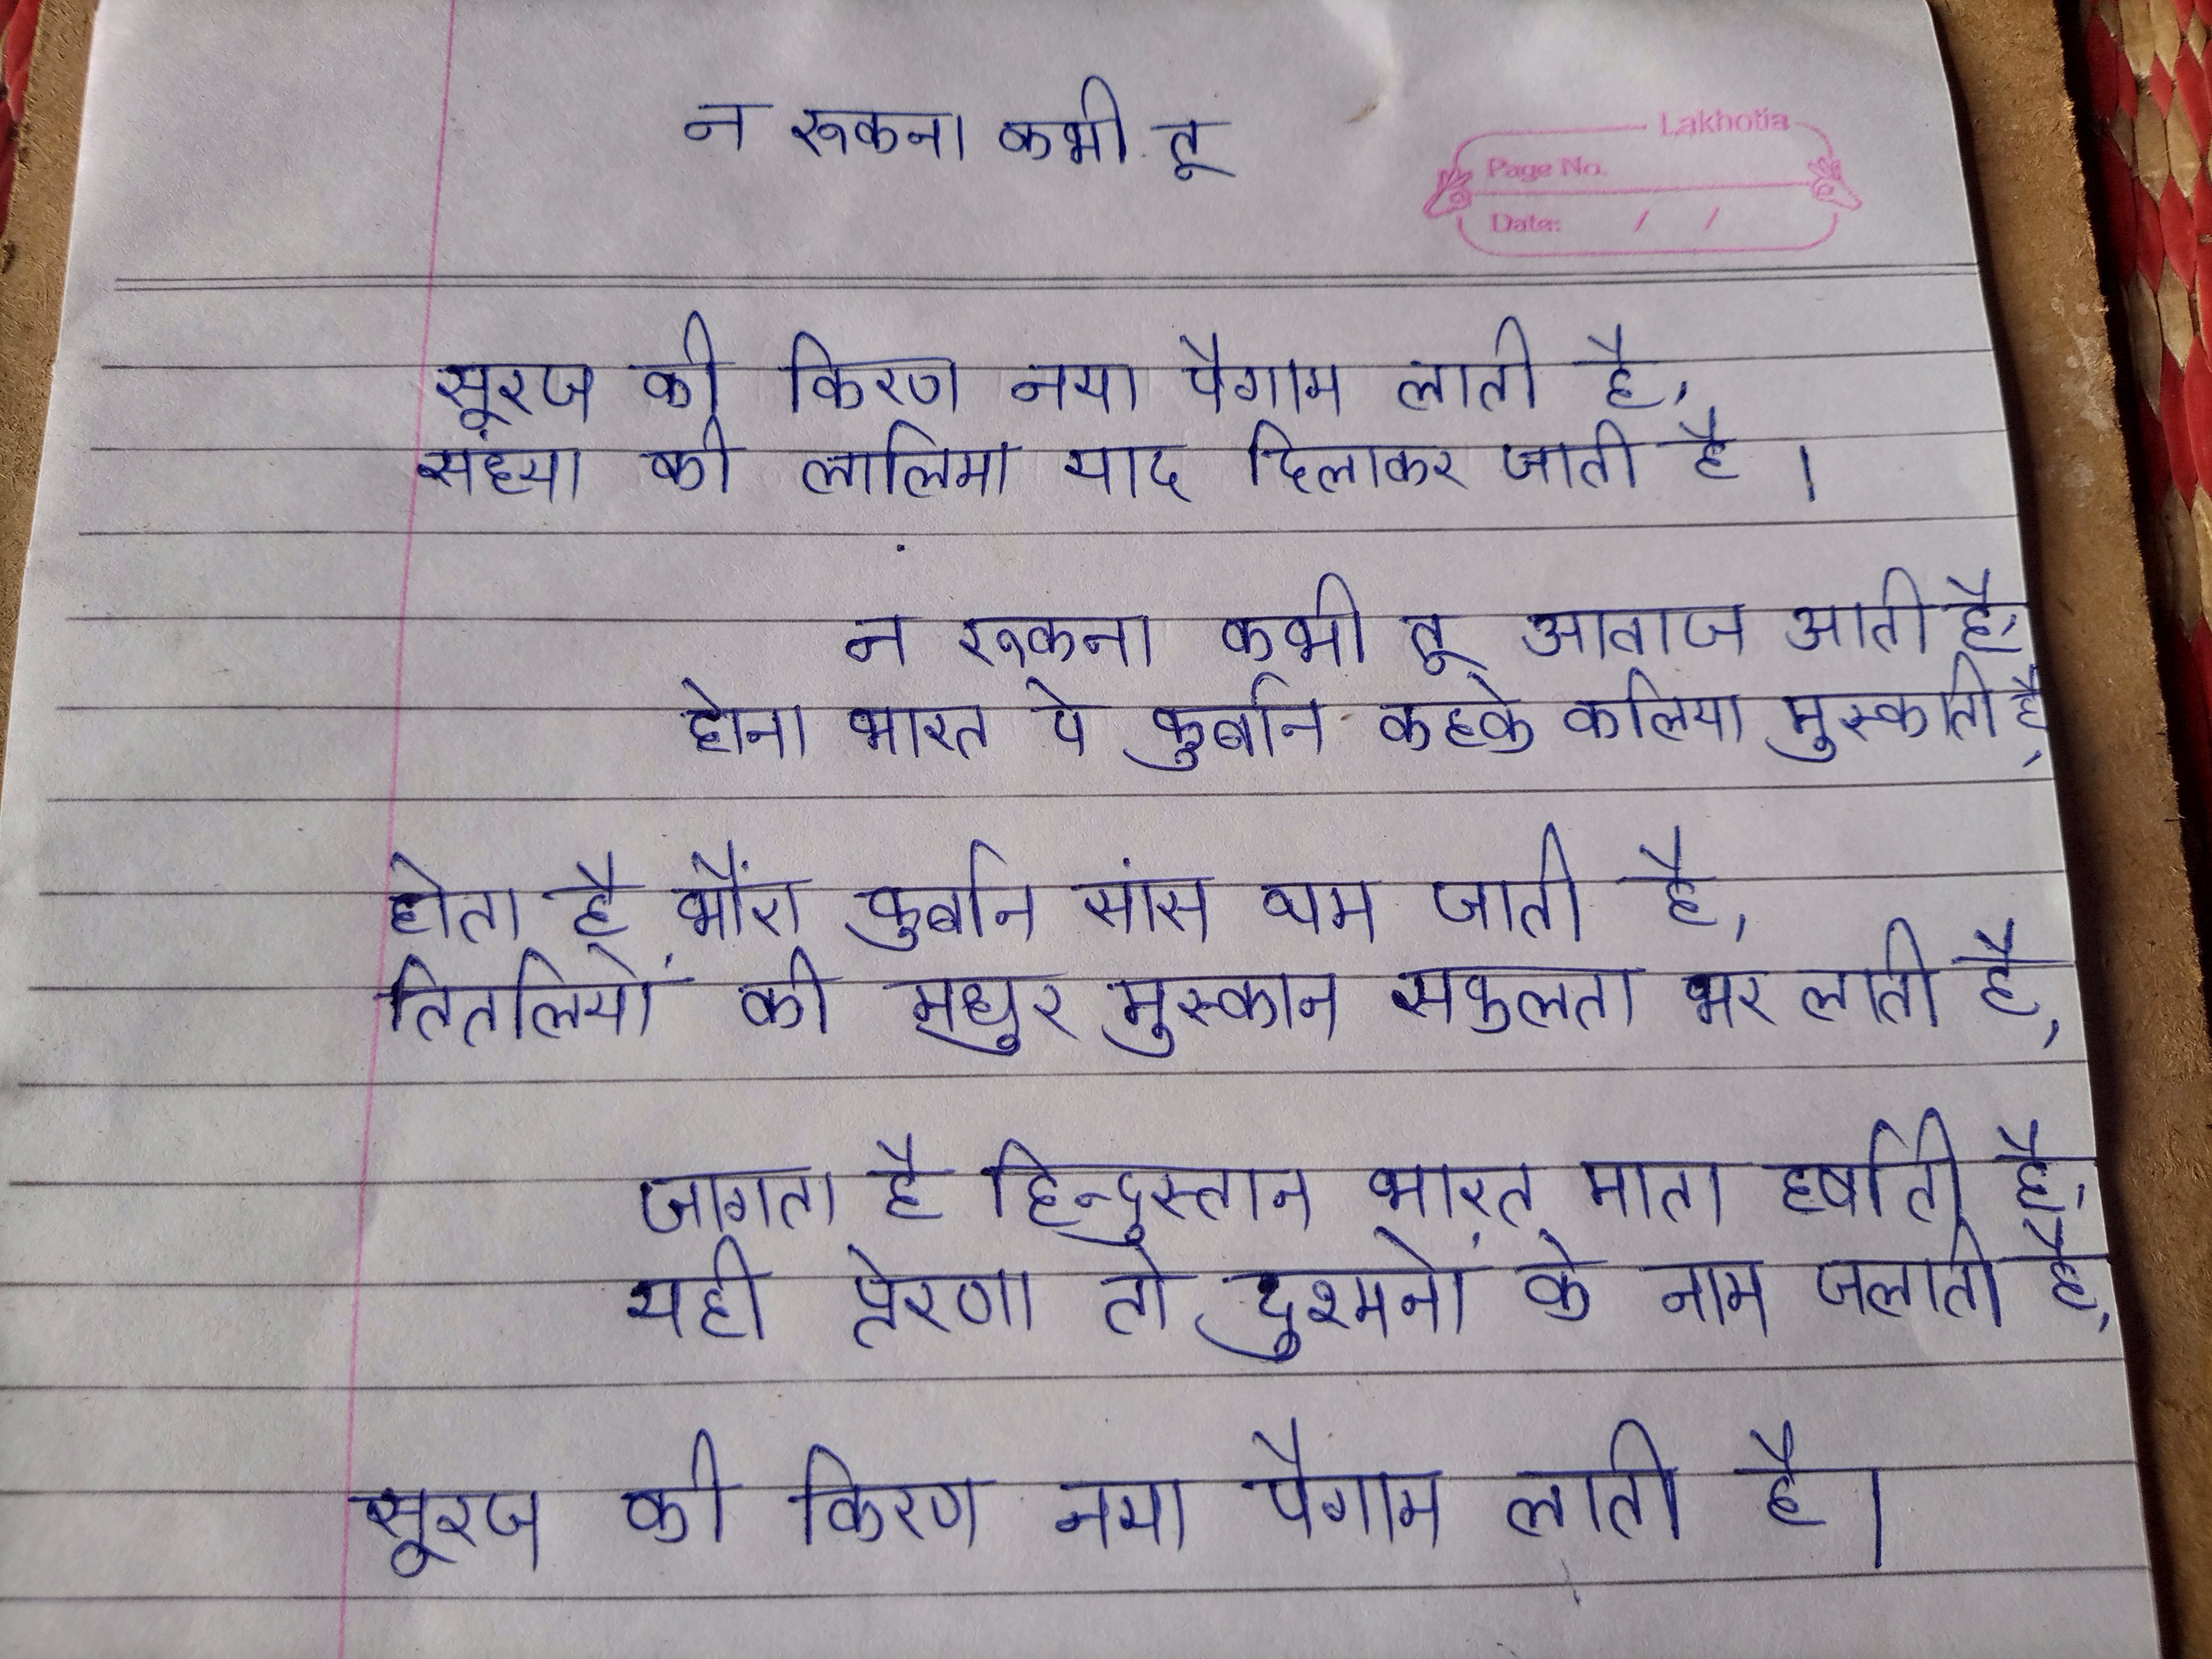 न रूकना कभी तू
Lakhotia
Page No.
Date: / /
सूरज की किरण नया पैगाम लाती है,
संध्या की लालिमा याद दिलाकर जाती है ।
न रूकना कभी तू आवाज आती है,
होना भारत पे कुर्बान कहके कलिया मुस्काती है,
होता है भौंरा कुर्बान सांस थम जाती है,
तितलियों की मधुर मुस्कान सफुलता भर लाती है,
जागता है हिन्दुस्तान भारत माता हर्षाती है,
यही प्रेरणा तो दुश्मनों के नाम जलाती है,
सूरज की किरण नया पैगाम लाती है।